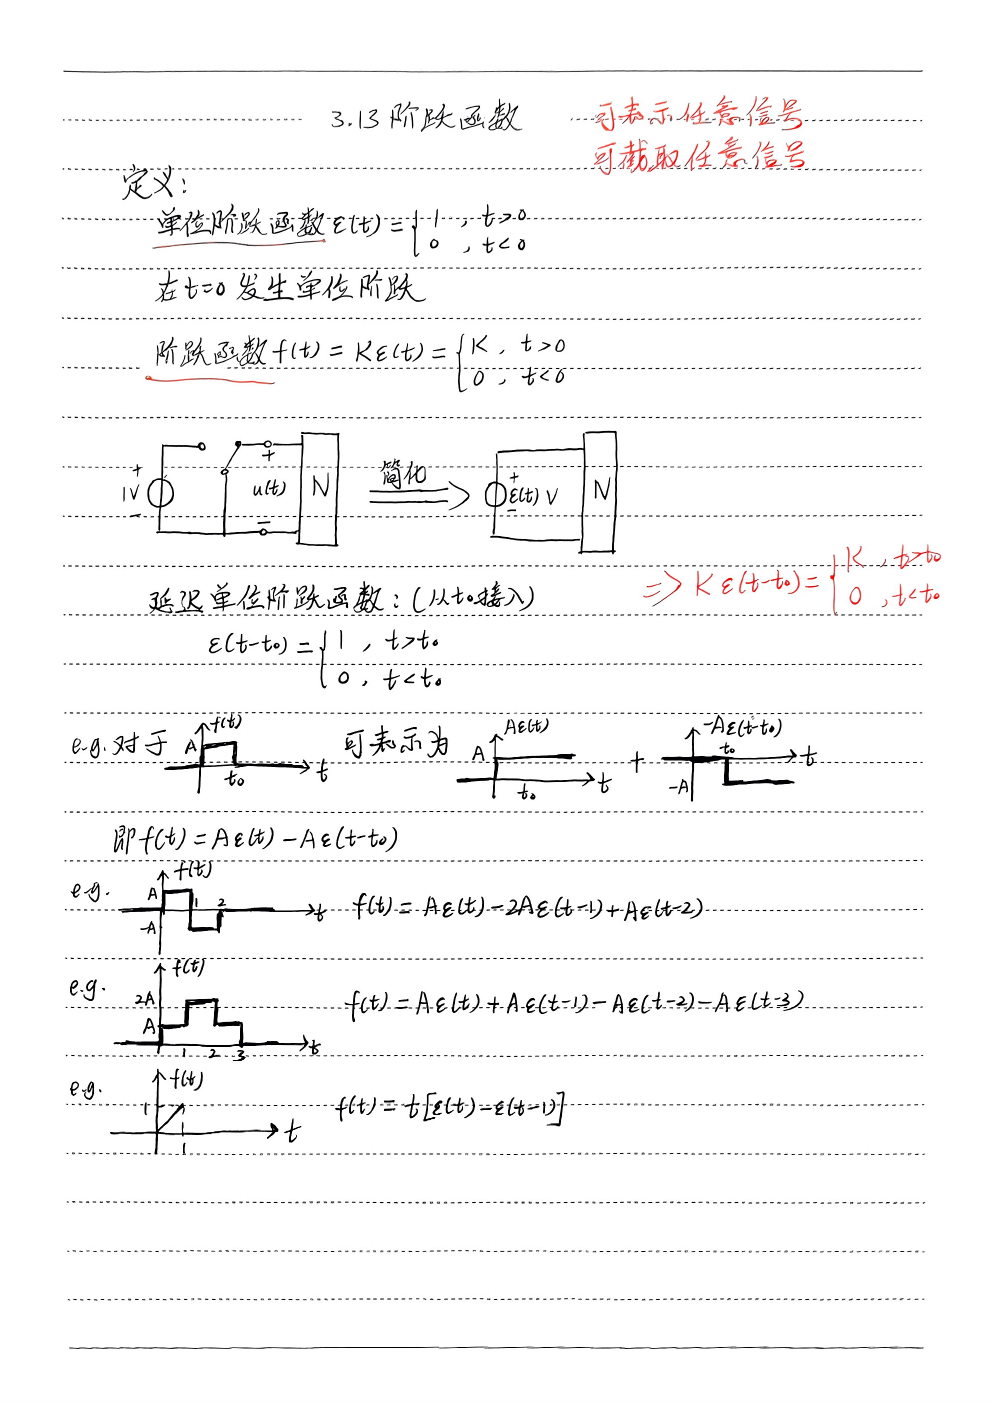 3.13 阶跃函数
可表示任意信号
可截取任意信号
定义:
单位阶跃函数 ε(t) = { 1 , t>0
0 , t<0
在t=0 发生单位阶跃
阶跃函数 f(t) = Kε(t) = { K , t>0
0 , t<0
+
1V
-
+
u(t)
-
N
简化
+
ε(t) V
-
N
延迟单位阶跃函数: (从t₀接入)
⇒ Kε(t-t₀) = { K , t>t₀
0 , t<t₀
ε(t-t₀) = { 1 , t>t₀
0 , t<t₀
e.g. 对于
f(t)
A
t₀
t
可表示为
Aε(t)
A
t₀
t
+
-Aε(t-t₀)
t₀
t
-A
即 f(t) = Aε(t) - Aε(t-t₀)
e.g.
f(t)
A
1 2
t
-A
f(t) = Aε(t) - 2Aε(t-1) + Aε(t-2)
e.g.
f(t)
2A
A
1 2 3
t
f(t) = Aε(t) + Aε(t-1) - Aε(t-2) - Aε(t-3)
e.g.
f(t)
1
t
1
f(t) = t[ε(t) - ε(t-1)]